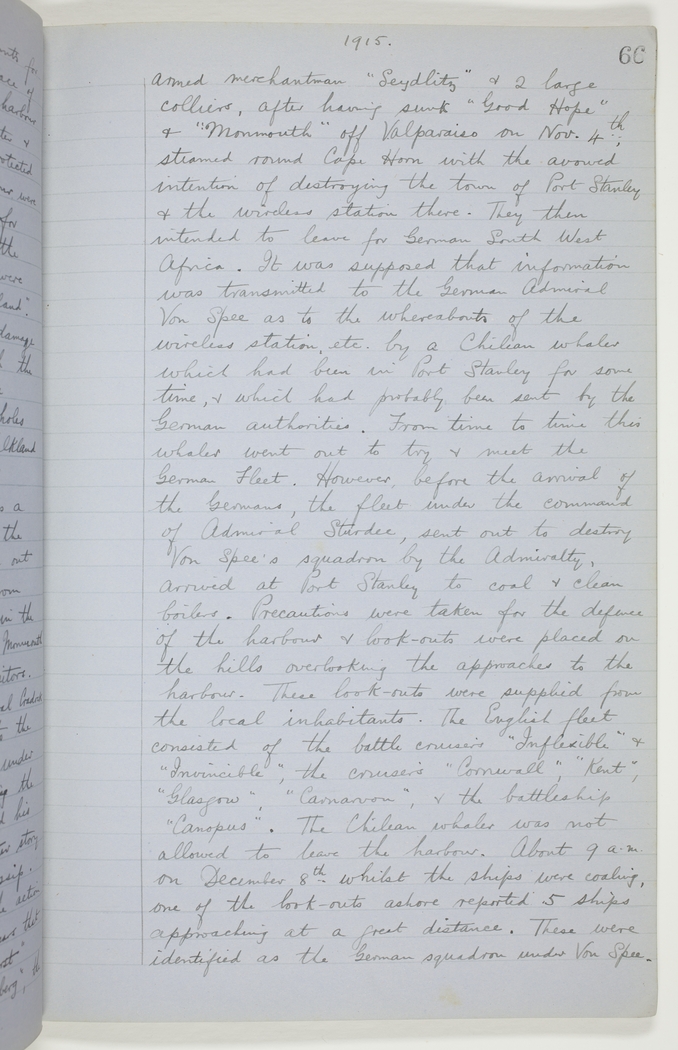 1915.
66
armed merchantman "Seydlitz" & 2 large
colliers, after having sunk "Good Hope"
& "Monmouth" off Valparaiso on Nov. 4th,
steamed round Cape Horn with the avowed
intention of destroying the town of Port Stanley
& the wireless station there. They then
intended to leave for German South West
Africa. It was supposed that information
was transmitted to the German Admiral
Von Spee as to the whereabouts of the
wireless station, etc. by a Chilean whaler
which had been in Port Stanley for some
time, & which had probably been sent by the
German authorities. From time to time this
whaler went out to try & meet the
German Fleet. However, before the arrival of
the Germans, the fleet under the command
of Admiral Sturdee, sent out to destroy
Von Spee's squadron by the Admiralty,
arrived at Port Stanley to coal & clean
boilers. Precautions were taken for the defence
of the harbour & look-outs were placed on
the hills overlooking the approaches to the
harbour. These look-outs were supplied from
the local inhabitants. The English fleet
consisted of the battle cruisers "Inflexible" &
"Invincible", the cruisers "Cornwall", "Kent",
"Glasgow", "Carnarvon", & the battleship
"Canopus". The Chilean whaler was not
allowed to leave the harbour. About 9 a.m.
on December 8th whilst the ships were coaling,
one of the look-outs ashore reported 5 ships
approaching at a great distance. These were
identified as the German squadron under Von Spee.